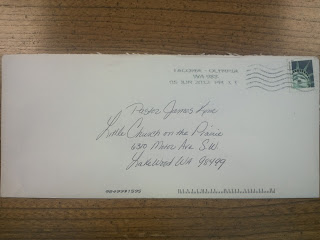 TACOMA - OLYMPIA
Pastor James Kyne
Little Church on the Prairie
6310 Motor Ave S.W.
Lakewood WA 98499